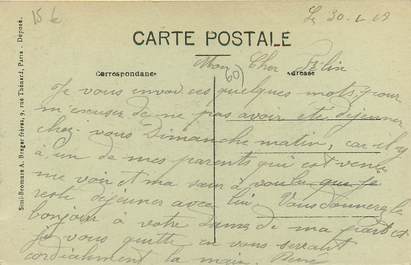 15 k
Le 30-6-09
CARTE POSTALE
Mon Cher
Correspondance
60
Adresse
Je vous envoi ces quelques mots pour
m'excuser de ne pas avoir été déjeuner
chez vous Dimanche matin, car il y
a un de mes parents qui est venu
me voir et ma sœur a voulu que je
reste déjeuner avec lui Vous donnerez le
bonjour à votre dame de ma part et
je vous quitte en vous serrant
cordialement la main. René
Simi-Bromure A. Breger frères, 9, rue Thénard, Paris - Déposé.